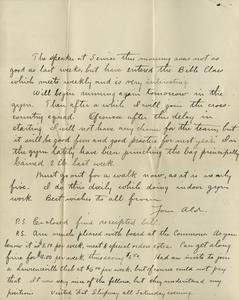 The speaker at Service this morning was not as
good as last week, but have entered the Bible Class
which meets weekly and is very interesting.
Will begin running again tomorrow in the
gym. Then after a while I will join the cross-
country squad. Of course after this delay in
starting I will not have any chance for the team, but
it will be good fun and good practice for next year. In
the gym lately have been punching the bag principally.
Gained 2 lb last week.
Must go out for a walk now, as it is nearly
five. I do this daily while doing indoor gym
work. Best wishes to all from
Your
P.S. Enclosed find receipted bill.
P.S. Am much pleased with board at the Commons. As you
know it is per week, meat & special orders extra. Can get along
fine for per week, this saving. Had an invite to join
a Lawrenceville club at per week, but of course could not pay
that. It was very nice of the fellows but they understand my
position. Visited Fet all Saturday evening.